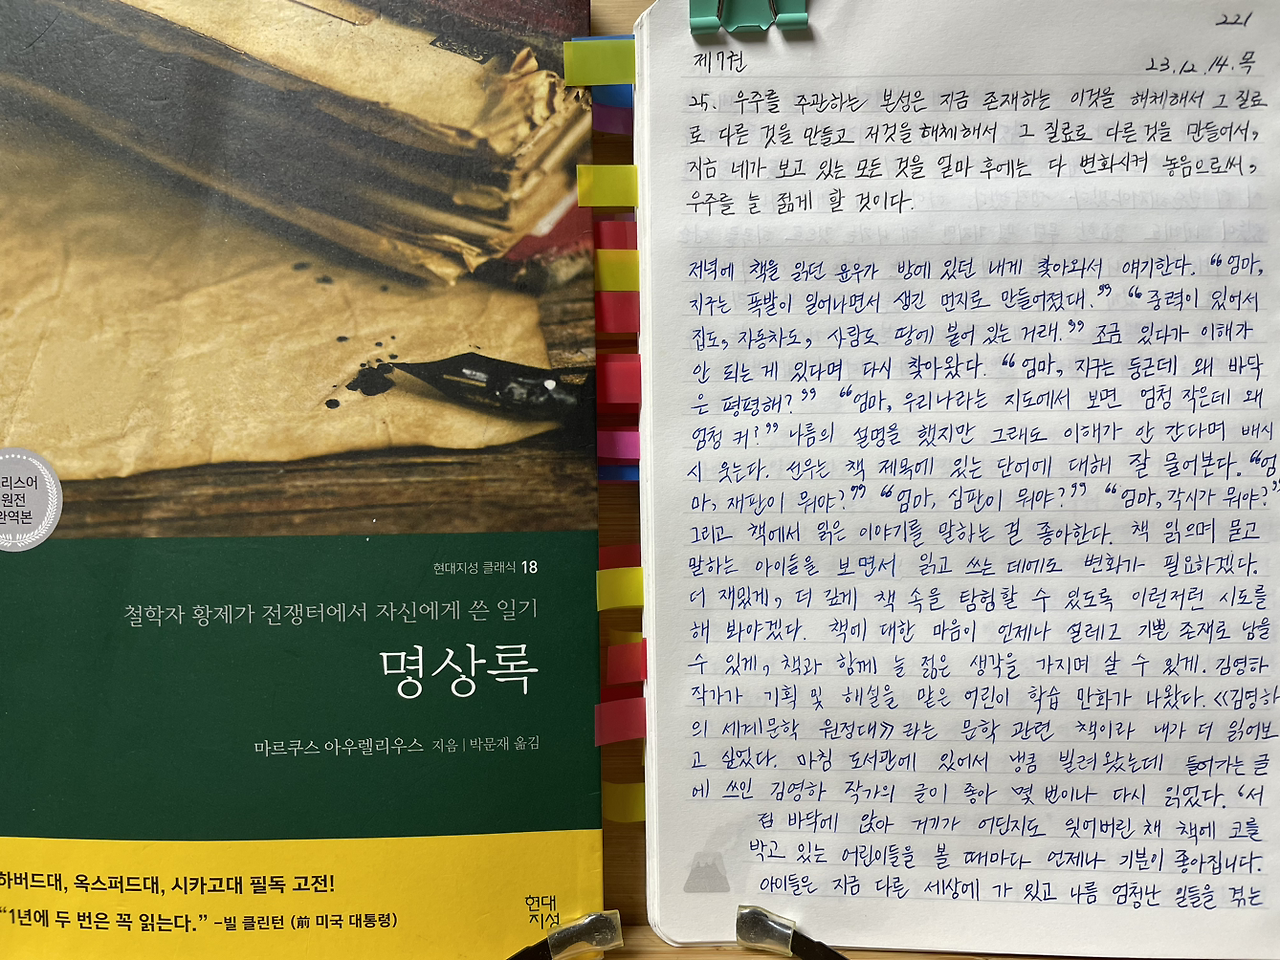 리스어
원전
완역본
현대지성 클래식 18
철학자 황제가 전쟁터에서 자신에게 쓴 일기
명상록
마르쿠스 아우렐리우스 지음 | 박문재 옮김
하버드대, 옥스퍼드대, 시카고대 필독 고전!
“1년에 두 번은 꼭 읽는다.” –빌 클린턴 (前 미국 대통령)
현대
지성
221
제7권
23.12.14.목
25. 우주를 주관하는 본성은 지금 존재하는 이것을 해체해서 그 질료
로 다른 것을 만들고 저것을 해체해서 그 질료로 다른 것을 만들어서,
지금 네가 보고 있는 모든 것을 얼마 후에는 다 변화시켜 놓음으로써,
우주를 늘 젊게 할 것이다.
저녁에 책을 읽던 윤우가 방에 있던 내게 찾아와서 얘기한다. “엄마,
지구는 폭발이 일어나면서 생긴 먼지로 만들어졌대.” “중력이 있어서
집도, 자동차도, 사람도 땅에 붙어 있는 거래.” 조금 있다가 이해가
안 되는 게 있다며 다시 찾아왔다. “엄마, 지구는 둥근데 왜 바닥
은 평평해?” “엄마, 우리나라는 지도에서 보면 엄청 작은데 왜
엄청 커?” 나름의 설명을 했지만 그래도 이해가 안 간다며 배시
시 웃는다. 선우는 책 제목에 있는 단어에 대해 잘 물어본다. “엄
마, 재판이 뭐야?” “엄마, 심판이 뭐야?” “엄마, 각시가 뭐야?”
그리고 책에서 읽은 이야기를 말하는 걸 좋아한다. 책 읽으며 묻고
말하는 아이들을 보면서 읽고 쓰는 데에도 변화가 필요하겠다.
더 재밌게, 더 깊게 책 속을 탐험할 수 있도록 이런저런 시도를
해 봐야겠다. 책에 대한 마음이 언제나 설레고 기쁜 존재로 남을
수 있게, 책과 함께 늘 젊은 생각을 가지며 살 수 있게. 김영하
작가가 기획 및 해설을 맡은 어린이 학습 만화가 나왔다. 《김영하
의 세계문학 원정대》라는 문학 관련 책이라 내가 더 읽어보
고 싶었다. 마침 도서관에 있어서 냉큼 빌려왔는데 들어가는 글
에 쓰인 김영하 작가의 글이 좋아 몇 번이나 다시 읽었다. ‘서
점 바닥에 앉아 거기가 어딘지도 잊어버린 채 책에 코를
박고 있는 어린이들을 볼 때마다 언제나 기분이 좋아집니다.
아이들은 지금 다른 세상에 가 있고 나름 엄청난 일들을 겪는